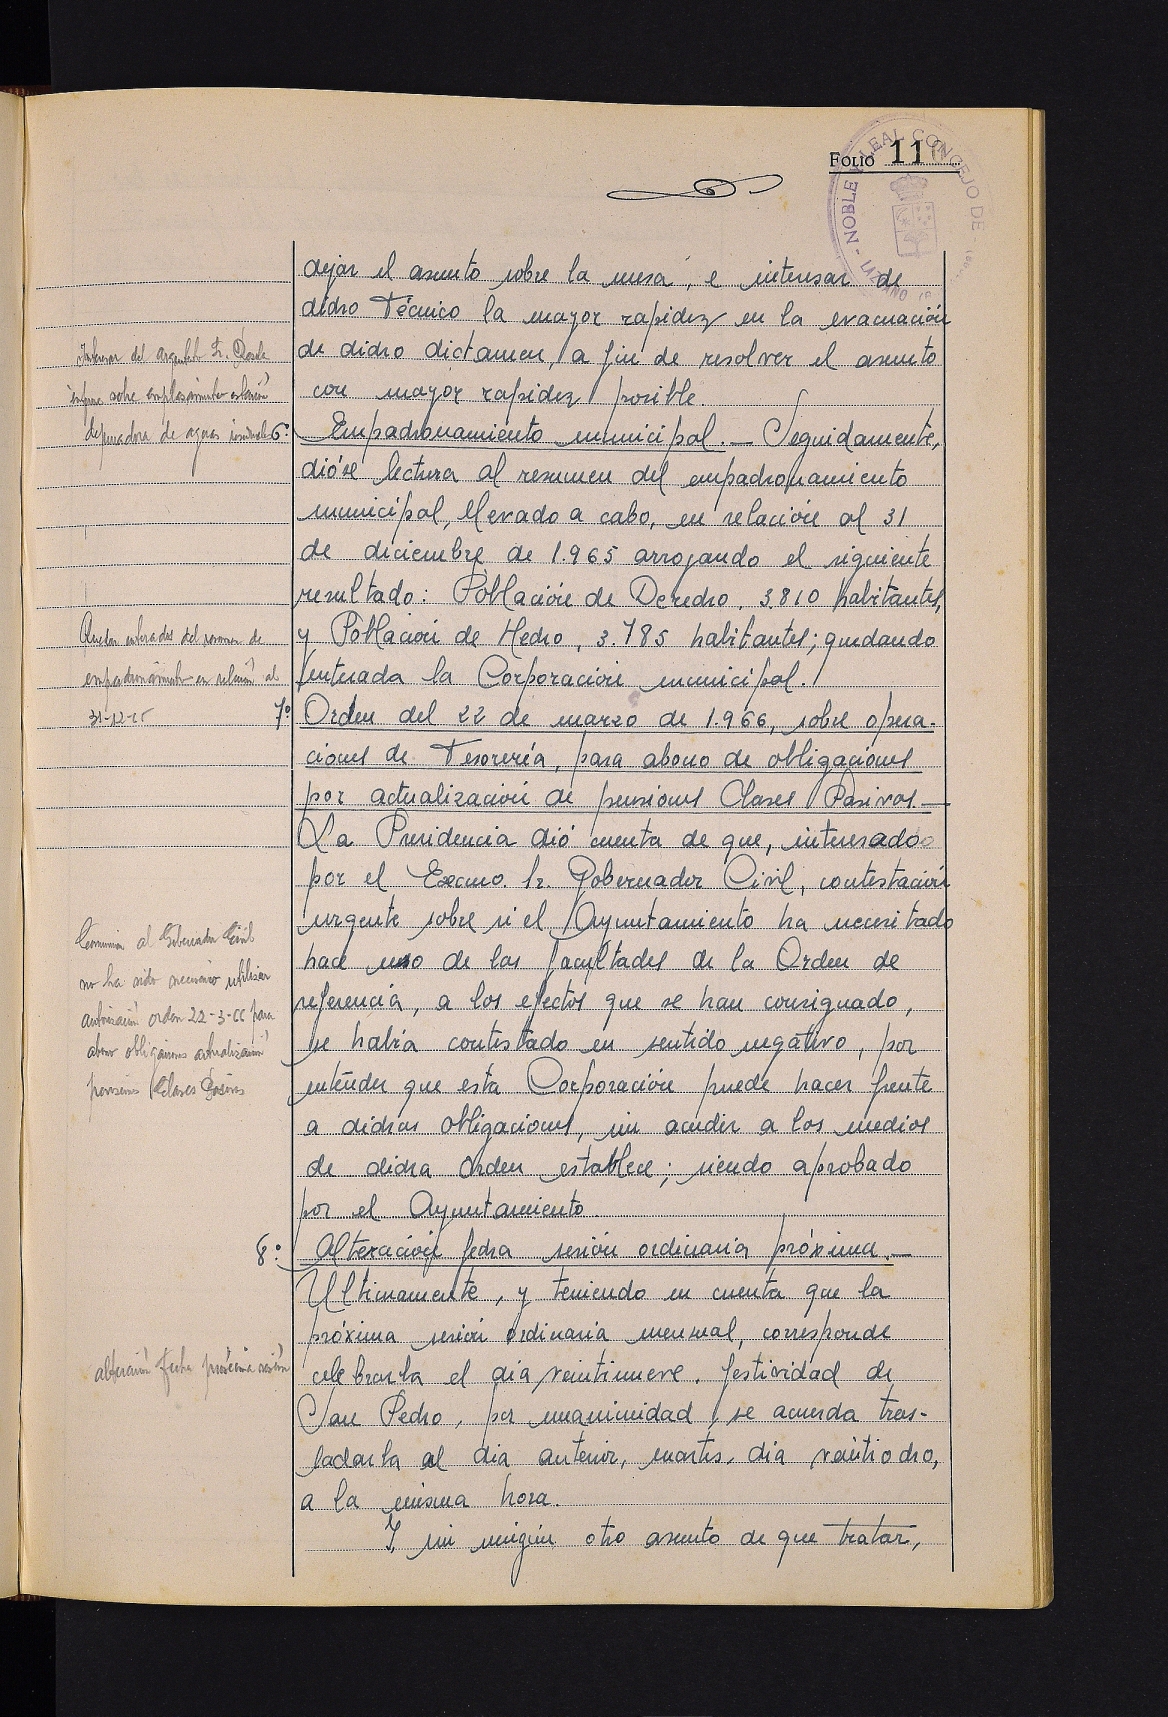 FOLIO 11
NOBLE Y LEAL CONCEJO DE
LAZCANO
dejar el asunto sobre la mesa, e interesar de
dicho Técnico la mayor rapidez en la evacuación
de dicho dictamen, a fin de resolver el asunto
con mayor rapidez posible.
Interesar del arquitecto Sr.
informe sobre emplazamiento estación
depuradora de aguas residuales
6º Empadronamiento municipal.— Seguidamente,
dióse lectura al resumen del empadronamiento
municipal, llevado a cabo, en relación al 31
de diciembre de 1.965 arrojando el siguiente
resultado: Población de Derecho, 3.810 habitantes,
y Población de Hecho, 3.785 habitantes; quedando
enterada la Corporación municipal.
Quedan enterados del resumen de
empadronamiento en relación al
31-12-65
7º Orden del 22 de marzo de 1.966, sobre opera-
ciones de Tesorería, para abono de obligaciones
por actualización de pensiones Clases Pasivas.—
La Presidencia dió cuenta de que, interesado
por el Excmo. Sr. Gobernador Civil, contestación
urgente sobre si el Ayuntamiento ha necesitado
hace uso de las facultades de la Orden de
referencia, a los efectos que se han consignado,
se había contestado en sentido negativo, por
entender que esta Corporación puede hacer frente
a dichas obligaciones, sin acudir a los medios
de dicha Orden establece; siendo aprobado
por el Ayuntamiento
Comunicar al Gobernador Civil
no ha sido necesario utilizar
autorización orden 22-3-66 para
abono obligaciones actualización
pensiones Clases Pasivas
8º Alteración fecha sesión ordinaria próxima.—
Ultimamente, y teniendo en cuenta que la
próxima sesión ordinaria mensual, corresponde
celebrarla el día veintinueve, festividad de
San Pedro, por unanimidad, se acuerda tras-
ladarla al día anterior, martes, día veintiocho,
a la misma hora.
alteración fecha próxima sesión
Y, sin ningún otro asunto de que tratar,